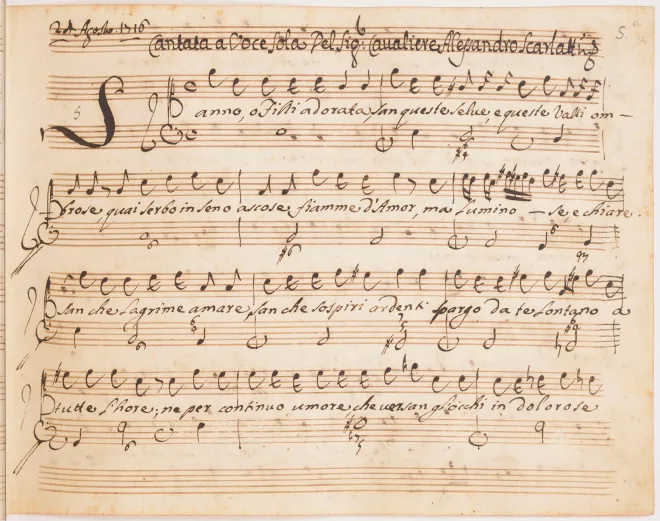 2 di Agosto 1716
6
Cantata a Voce sola Del Sig: Cavaliere Alessandro Scarlatti
5
S anno, o Filli adorata san queste selve, e queste Valli om-
brose, quai serbo in seno ascose fiamme d'Amor, ma Lumino - se, e chiare.
san che Lagrime amare, san che sospiri ardenti spargo da te Lontano a
tutte l'hore, ne per continuo umore, che versan gl'occhi in dolorose